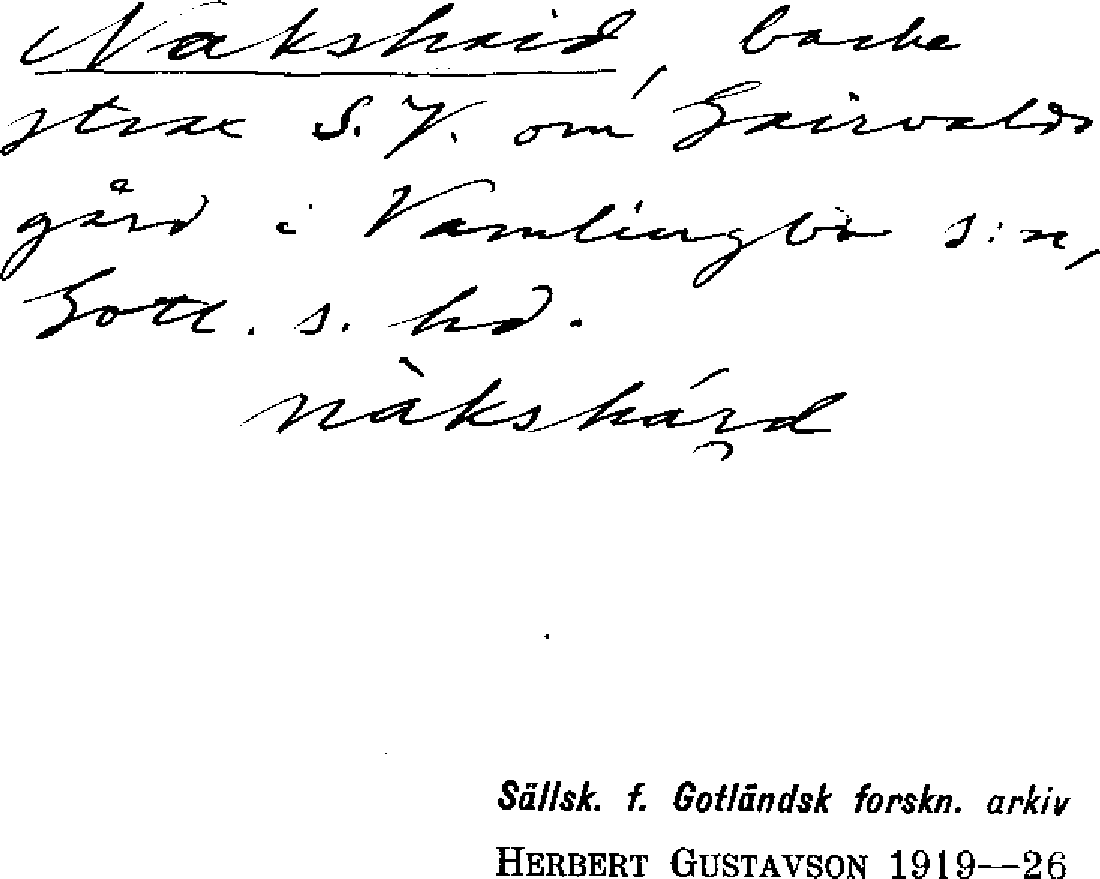 Nakshaid, backe
strax S.V. om Gairvalds
gård i Vamlingbo s:n,
Gotl. s. hd.
Sällsk. f. Gotländsk forskn. arkiv
HERBERT GUSTAVSON 1919—26